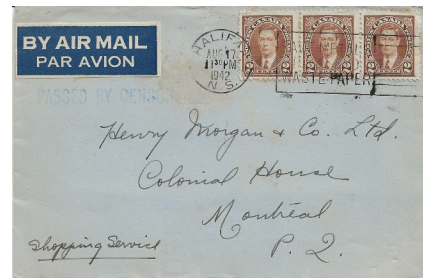 BY AIR MAIL
PAR AVION
HALIFAX
AUG 17
11 30 PM
1942
N.S.
CANADA
CANADA
CANADA
2 2
2 2
2 2
WASTE PAPER
PASSED BY CENSOR
Henry Morgan & Co. Ltd.
Colonial House
Montréal
P. Q.
Shopping Service